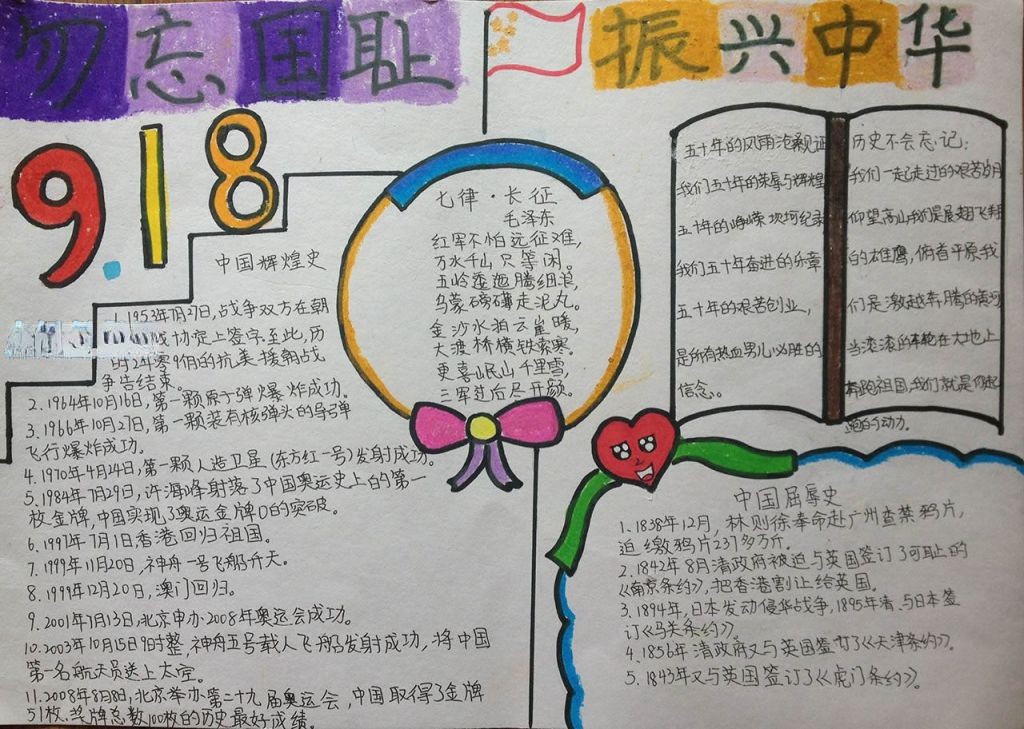 勿忘国耻 振兴中华
9.18
中国辉煌史
1.1953年7月27日,战争双方在朝
战协定上签字.至此,历
时2年零9個的抗美援朝战
争告结束。
2.1964年10月16日,第一颗原子弹爆炸成功。
3.1966年10月27日,第一颗装有核弹头的导弹
飞行爆炸成功。
4.1970年4月24日,第一颗人造卫星(东方红一号)发射成功。
5.1984年7月29日,许海峰射落了中国奥运史上的第一
枚金牌,中国实现了奥运金牌0的突破。
6.1997年7月1日,香港回归祖国。
7.1999年11月20日,神舟一号飞船升天。
8.1999年12月20日,澳门回归。
9.2001年7月13日,北京申办2008年奥运会成功。
10.2003年10月15日9时整,神舟五号载人飞船发射成功,将中国
第一名航天员送上太空。
11.2008年8月8日,北京举办第二十九届奥运会,中国取得了金牌
51枚.奖牌总数100枚的历史最好成绩。
七律·长征
毛泽东
红军不怕远征难,
万水千山只等闲。
五岭逶迤腾细浪,
乌蒙磅礴走泥丸。
金沙水拍云崖暖,
大渡桥横铁索寒。
更喜岷山千里雪,
三军过后尽开颜。
五十年的风雨沧桑见证
我们五十年的荣辱与辉煌
五十年的峥嵘坎坷纪录
我们五十年奋进的乐章
五十年的艰苦创业,
是所有热血男儿必胜的
信念。
历史不会忘记:
我们一起走过的艰苦岁月
仰望高山,我们是展翅飞翔
的雄鹰,俯着平原,我
们是激越奔腾的黄河
当滚滚的车轮在大地上
奔跑祖国,我们就是你起
跑的动力。
中国屈辱史
1.1838年12月,林则徐奉命赴广州查禁鸦片,
迫缴鸦片237多万斤.
2.1842年8月清政府被迫与英国签订了可耻的
《南京条约》,把香港割让给英国。
3.1894年,日本发动侵华战争,1895年清与日本签
订《马关条约》。
4.1856年清政府又与英国签订了《天津条约》。
5.1843年又与英国签订了《虎门条约》。